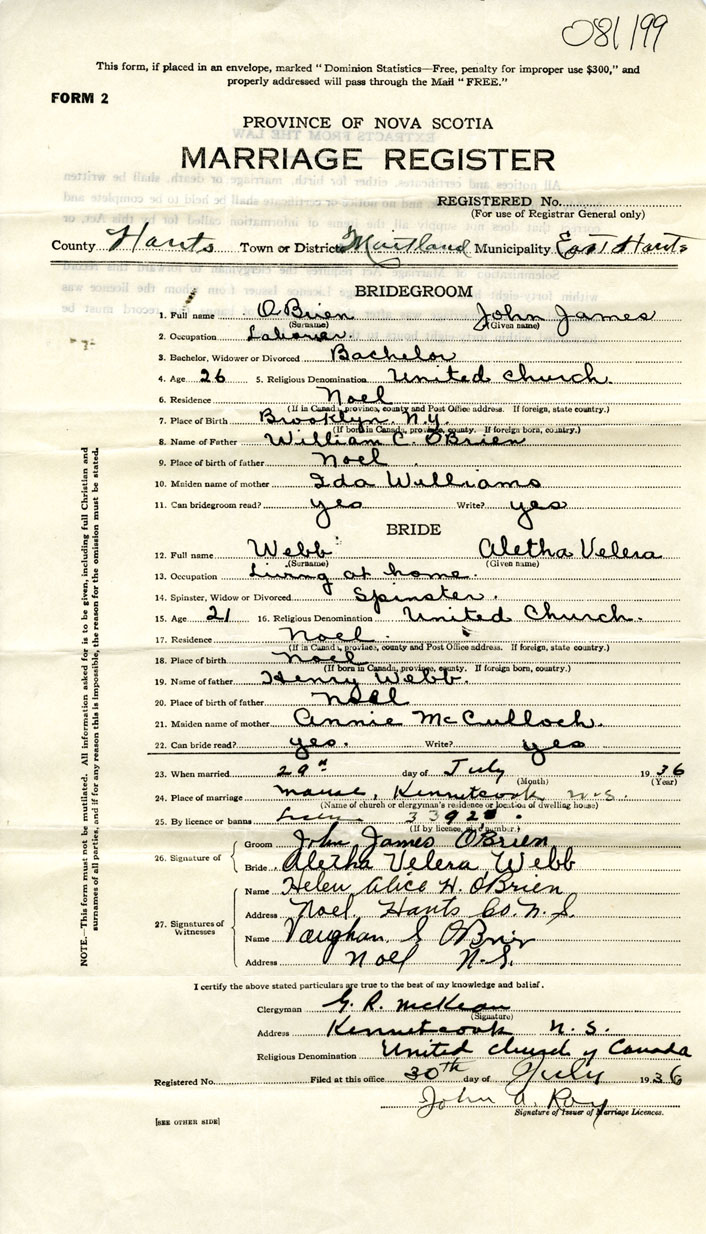 081199
This form, if placed in an envelope, marked "Dominion Statistics—Free, penalty for improper use $300," and
properly addressed will pass through the Mail "FREE."
FORM 2
PROVINCE OF NOVA SCOTIA
EXTRACTS FROM THE LAW
MARRIAGE REGISTER
REGISTERED No.
(For use of Registrar General only)
County Hants Town or District Maitland Municipality East Hants
BRIDEGROOM
1. Full name O'Brien John James
(Surname) (Given name)
2. Occupation Labourer
3. Bachelor, Widower or Divorced Bachelor
4. Age 26 5. Religious Denomination United Church.
6. Residence Noel
(If in Canada, province, county and Post Office address. If foreign, state country.)
7. Place of Birth Brooklyn. N.Y.
(If born in Canada, province, county. If foreign born, country.)
8. Name of Father William C. O'Brien
9. Place of birth of father Noel
10. Maiden name of mother Ida Williams
11. Can bridegroom read? yes Write? yes
BRIDE
12. Full name Webb Aletha Velera
(Surname) (Given name)
13. Occupation Living at home.
14. Spinster, Widow or Divorced Spinster.
15. Age 21 16. Religious Denomination United Church.
17. Residence Noel
(If in Canada, province, county and Post Office address. If foreign, state country.)
18. Place of birth Noel
(If born in Canada, province, county. If foreign born, country.)
19. Name of father Henry Webb.
20. Place of birth of father Noel
21. Maiden name of mother Annie McCulloch.
22. Can bride read? yes. Write? yes
23. When married 29th day of July 1936
(Month) (Year)
24. Place of marriage manse, Kennetcook N.S.
(Name of church or clergyman's residence or location of dwelling house)
25. By licence or banns
(If by licence, give number.)
26. Signature of Groom John James O'Brien
Bride Aletha Velera Webb
27. Signatures of Witnesses
Name Helen Alice H. O'Brien
Address Noel, Hants Co. N.S.
Name Vaughan S O'Brien
Address Noel N.S.
I certify the above stated particulars are true to the best of my knowledge and belief.
Clergyman G. R. McKean
(Signature)
Address Kennetcook N.S.
Religious Denomination United Church of Canada
Registered No. Filed at this office 30th day of July 1936
John A. Roy
Signature of Issuer of Marriage Licences.
[SEE OTHER SIDE]
NOTE.—This form must not be mutilated. All information asked for is to be given, including full Christian and
surnames of all parties, and if for any reason this is impossible, the reason for the omission must be stated.